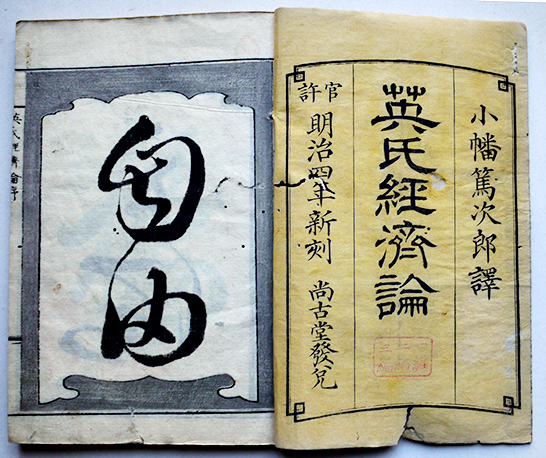 小幡篤次郎譯
英氏經濟論
官許
明治四年新刻 尚古堂發兌
自由
英氏經濟論序